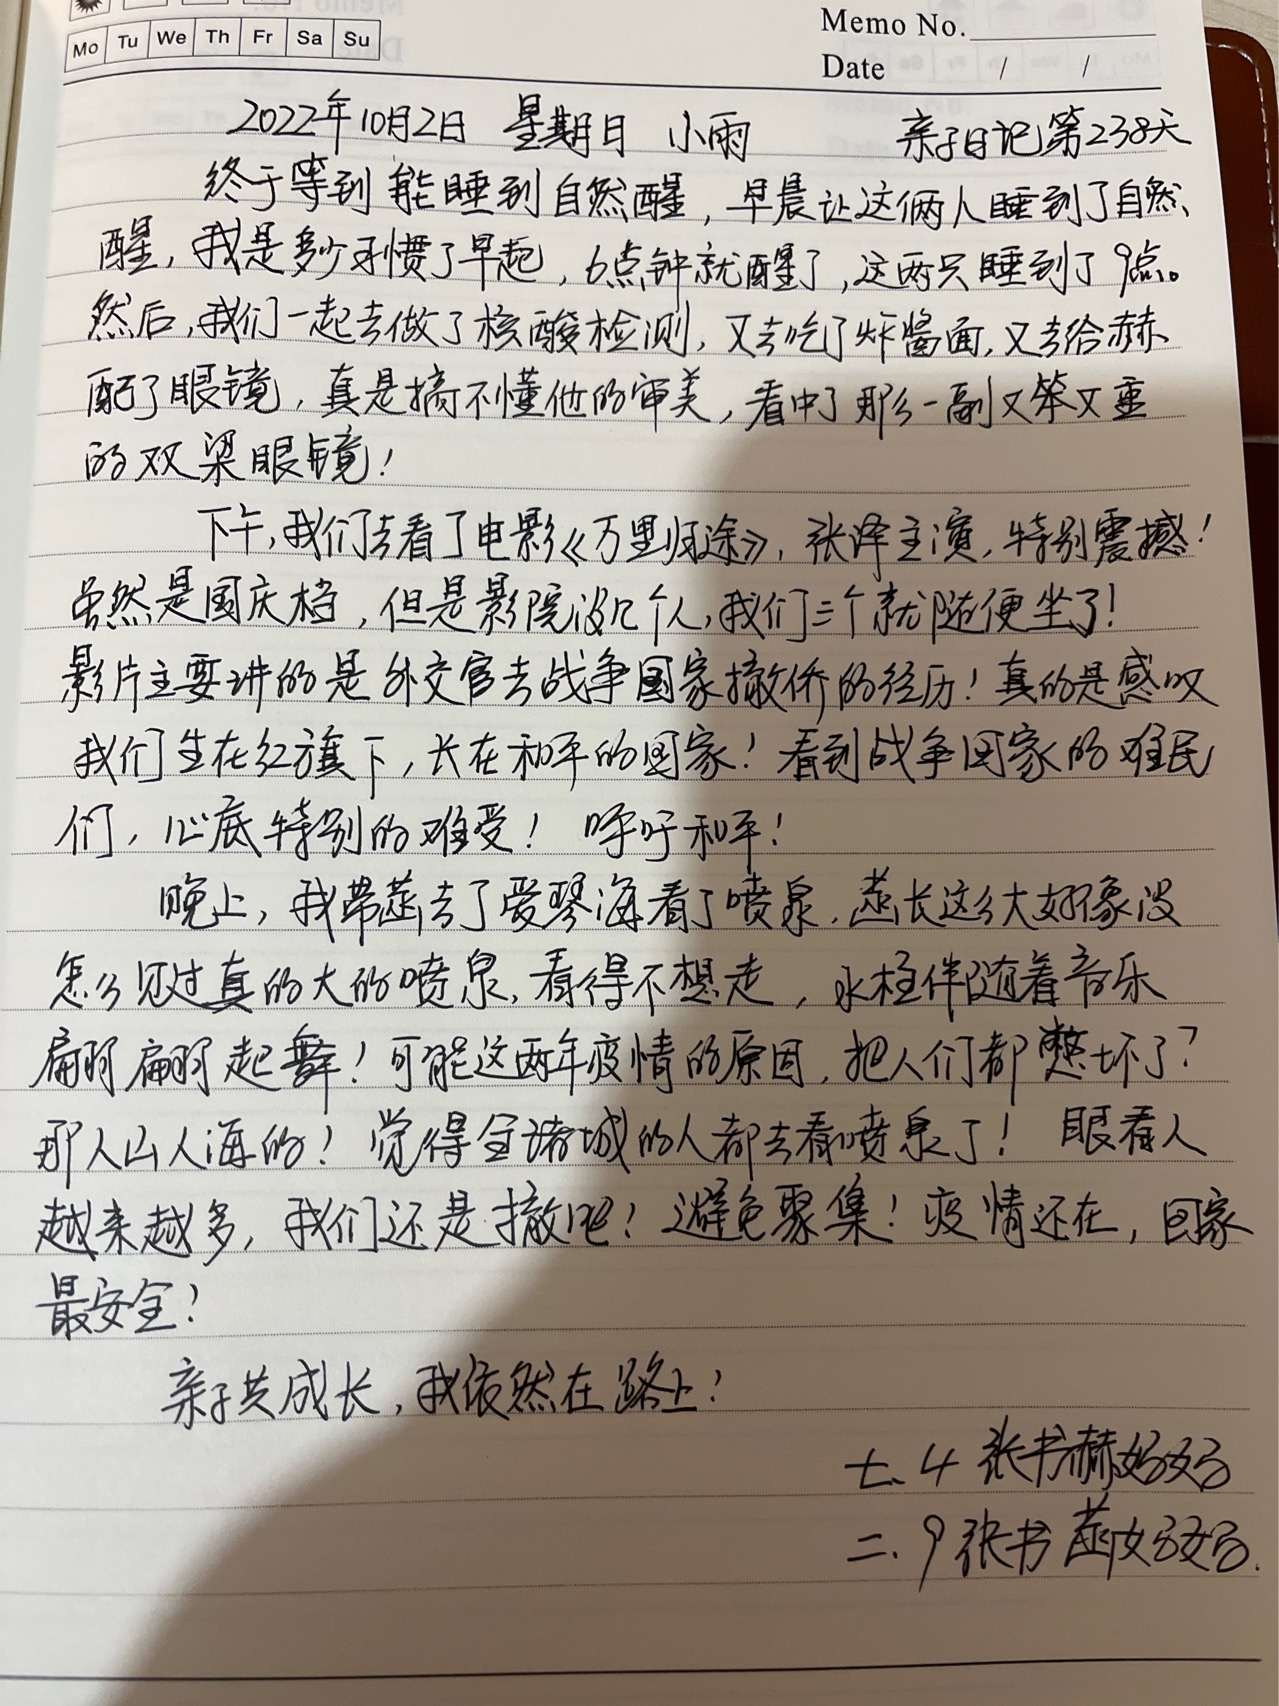 Mo Tu We Th Fr Sa Su
Memo No.
Date / /
2022年10月2日 星期日 小雨 亲子日记第238天
终于等到能睡到自然醒，早晨让这俩人睡到了自然
醒，我是多少习惯了早起，6点钟就醒了，这两只睡到了9点。
然后，我们一起去做了核酸检测，又去吃了炸酱面，又去给赫
配了眼镜，真是搞不懂他的审美，看中了那么一副又笨又重
的双梁眼镜！
下午，我们去看了电影《万里归途》，张译主演，特别震撼！
虽然是国庆档，但是影院没几个人，我们三个就随便坐了！
影片主要讲的是外交官去战争国家撤侨的经历！真的是感叹
我们生在红旗下，长在和平的国家！看到战争国家的难民
们，心底特别的难受！呼吁和平！
晚上，我带菡去了爱琴海看了喷泉，菡长这么大好像没
怎么见过真的大的喷泉，看得不想走，水柱伴随着音乐
翩翩起舞！可能这两年疫情的原因，把人们都憋坏了？
那人山人海的！觉得全诸城的人都去看喷泉了！眼看人
越来越多，我们还是撤吧！避免聚集！疫情还在，回家
最安全！
亲子共成长，我依然在路上！
七.4 张书赫妈妈
二.9 张书菡妈妈.